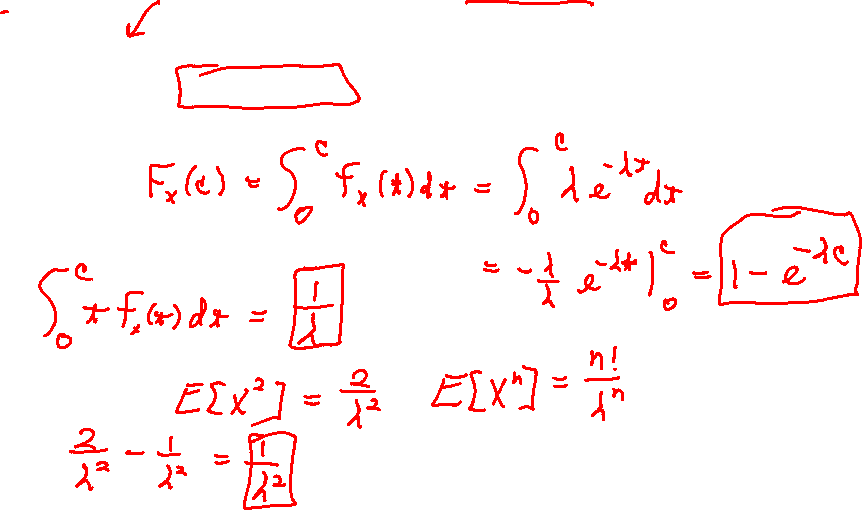 Fₓ(c) = ∫₀ᶜ fₓ(t)dt = ∫₀ᶜ λe^{-λt}dt
= -λ/λ e^{-λt}|₀ᶜ = 1 - e^{-λc}
∫₀ᶜ t fₓ(t)dt = 1/λ
E[X²] = 2/λ² E[Xⁿ] = n!/λⁿ
2/λ² - 1/λ² = 1/λ²